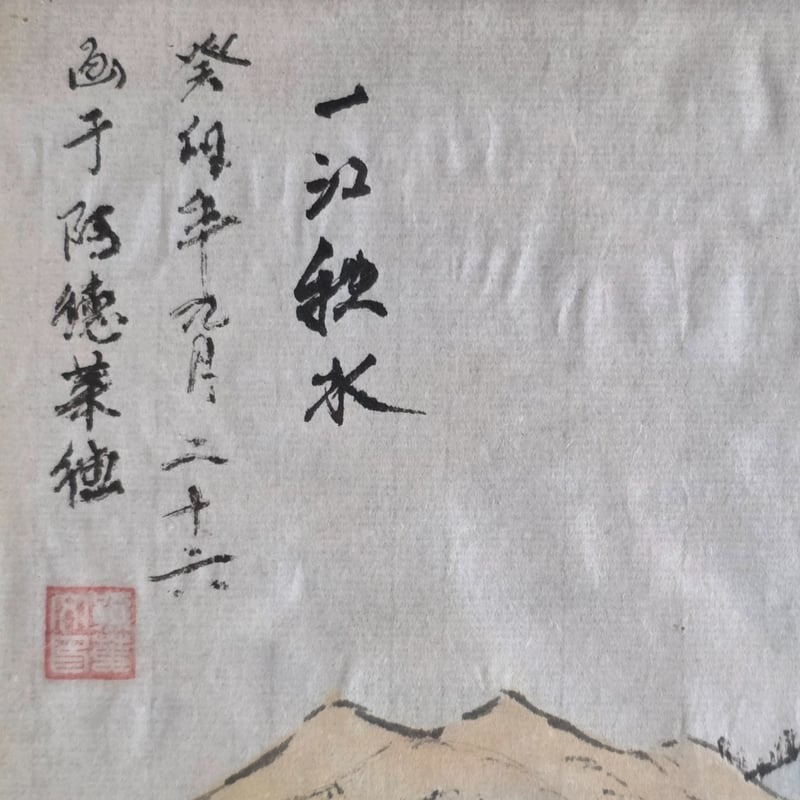 一江秋水
癸卯年九月二十六
画于阿德莱德